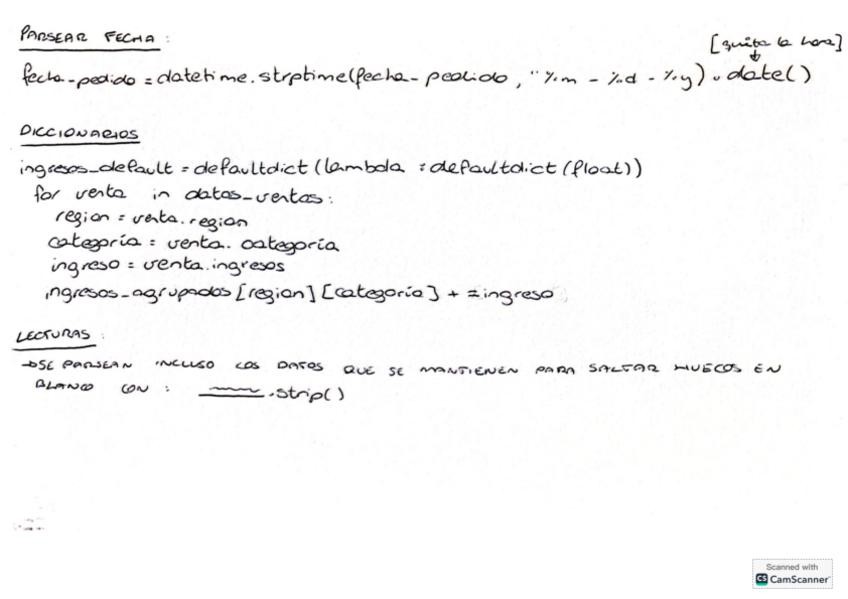 PARSEAR FECHA :
[quita la hora]
fecha_pedido = datetime.strptime(fecha_pedido, "%m - %d - %y).date()
DICCIONARIOS
ingresos_default = defaultdict (lambda : defaultdict (float))
for venta in datos_ventas:
region = venta.region
categoría = venta. categoría
ingreso = venta.ingresos
ingresos_agrupados [region] [categoría] + = ingreso
LECTURAS :
→ SE PARSEAN INCLUSO LOS DATOS QUE SE MANTIENEN PARA SALTAR HUECOS EN
BLANCO CON : .strip()
Scanned with
CS CamScanner